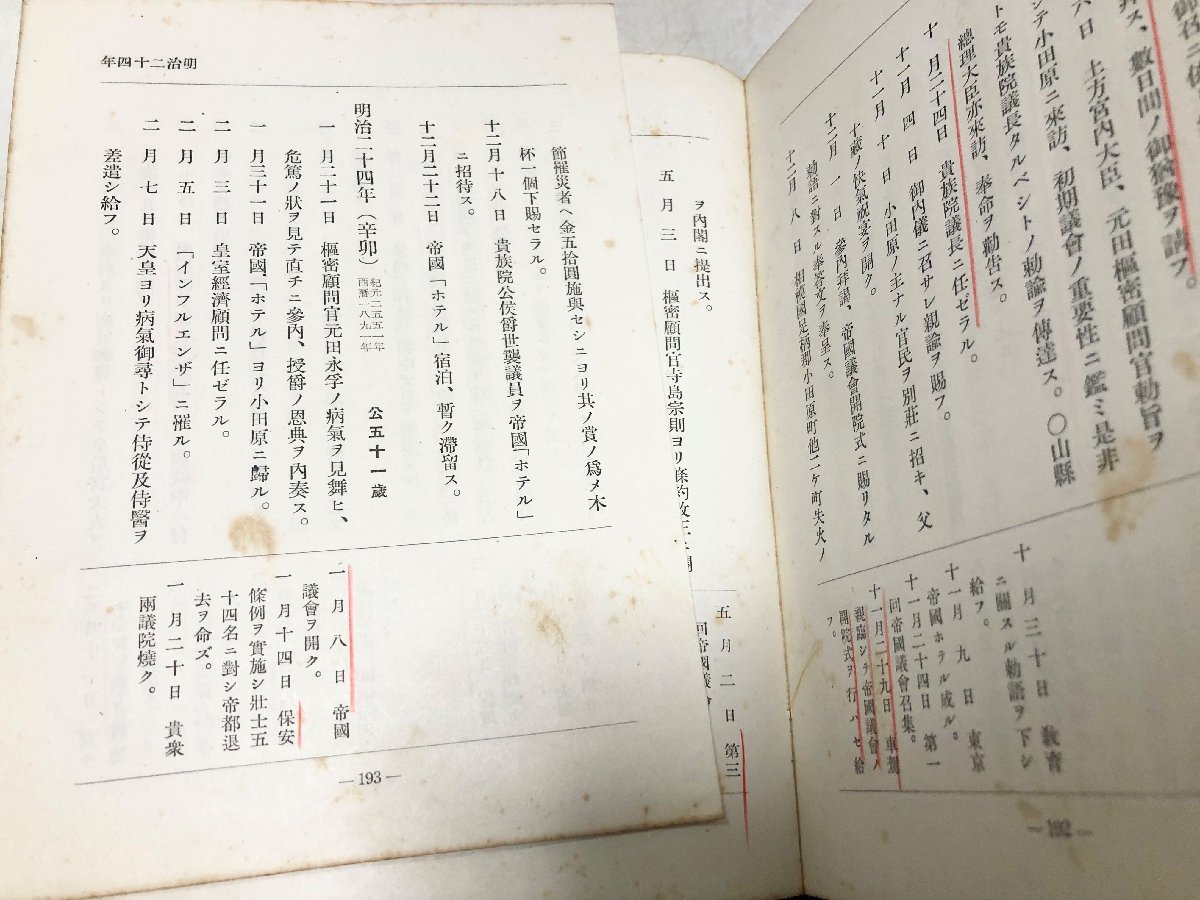 御召ニ依
拜ス、數日間ノ御猶豫ヲ請フ。
六日　上方宮内大臣、元田樞密顧問官勅旨ヲ
シテ小田原ニ來訪、初期議會ノ重要性ニ鑑ミ是非
トモ貴族院議長タルベシトノ勅諭ヲ傳達ス。〇山縣
總理大臣亦來訪、奉命ヲ勸告ス。
十月二十四日　貴族院議長ニ任ゼラル。
十一月四日　御内儀ニ召サレ親諭ヲ賜フ。
十一月十日　小田原ノ主ナル官民ヲ別莊ニ招キ、父
十歲ノ快氣祝宴ヲ開ク。
十二月一日　參内拜謁、帝國議會開院式ニ賜リタル
勅語ニ對スル奉答文ヲ奉呈ス。
十二月八日　相模國足柄郡小田原町他二ケ町失火ノ
十月三十日　敎育
ニ關スル勅語ヲ下シ
給フ。
十一月九日　東京
帝國ホテル成ル。
十一月二十四日　第一
回帝國議會召集。
十一月二十九日　車駕
親臨シテ帝國議會ノ
開院式ヲ行ハセ給
フ。
ヲ内閣ニ提出ス。
五月三日　樞密顧問官寺島宗則ヨリ條約改正ニ關
五月二日　第三
回帝國議會
明治二十四年
節罹災者ヘ金五拾圓施與セシニヨリ其ノ賞ノ爲メ木
杯一個下賜セラル。
十二月十八日　貴族院公侯爵世襲議員ヲ帝國「ホテル」
ニ招待ス。
十二月二十二日　帝國「ホテル」宿泊、暫ク滯留ス。
明治二十四年（辛卯）紀元二五五一年　西曆一八九一年　公五十一歲
一月二十一日　樞密顧問官元田永孚ノ病氣ヲ見舞ヒ、
危篤ノ狀ヲ見テ直チニ參内、授爵ノ恩典ヲ内奏ス。
一月三十一日　帝國「ホテル」ヨリ小田原ニ歸ル。
二月三日　皇室經濟顧問ニ任ゼラル。
二月五日　「インフルエンザ」ニ罹ル。
二月七日　天皇ヨリ病氣御尋トシテ侍從及侍醫ヲ
差遣シ給フ。
一月八日　帝國
議會ヲ開ク。
一月十四日　保安
條例ヲ實施シ壯士五
十四名ニ對シ帝都退
去ヲ命ズ。
一月二十日　貴衆
兩議院燒ク。
—193—